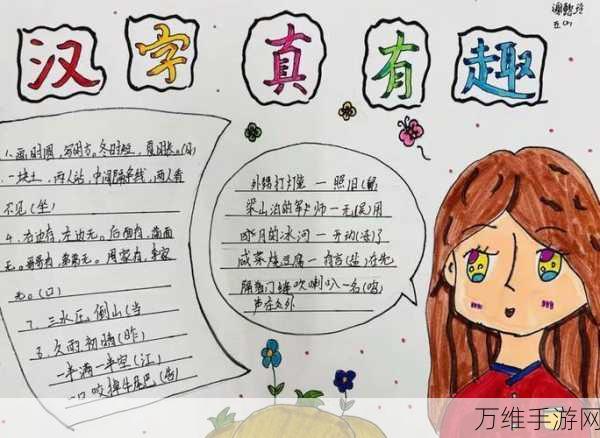 汉字真有趣
五(1)
1、画时圆,写时方,冬时短,夏时长。(日)
一块土,两人站,中间隔条线,两人看
不见(坐)
4、右边有,左边无。后面有,前面
无。哥哥有,弟弟无。周家有,李家
无。(口)
7、三水压倒山(当
8、久雨初晴(昨)
一半满一半空(江)
一口咬掉牛尾巴(告)
外甥打灯笼一照旧(舅
梁山泊的军师一无(吴)用
腊月的冰河一开动(冻)了
咸菜烧豆腐一有言(盐)在先
隔着门缝吹喇叭一名(鸣)
声在外
万维手游网